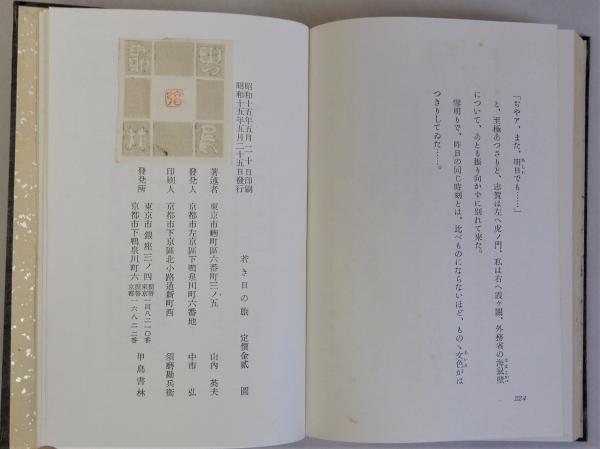 「ぢやア、また、明日でも……」
と、至極あつさりと、志賀は左へ虎ノ門、私は右へ霞ヶ關、外務省の海鼠壁
について、あとも振り向かずに別れて來た。
雪明りで、昨日の同じ時刻とは、比べものにならないほど、ものゝ文色がは
つきりしてゐた……。
224
若き日の旅 定價金貳圓
昭和十五年五月二十日印刷
昭和十五年五月二十五日發行
著述者 東京市麴町區六番町三ノ五 山內英夫
發兌人 京都市左京區下鴨泉川町六番地 中市弘
印刷人 京都市下京區北小路通新町西 須磨勘兵衞
發兌所 東京市銀座三ノ四 京都市下鴨泉川町六 甲鳥書林